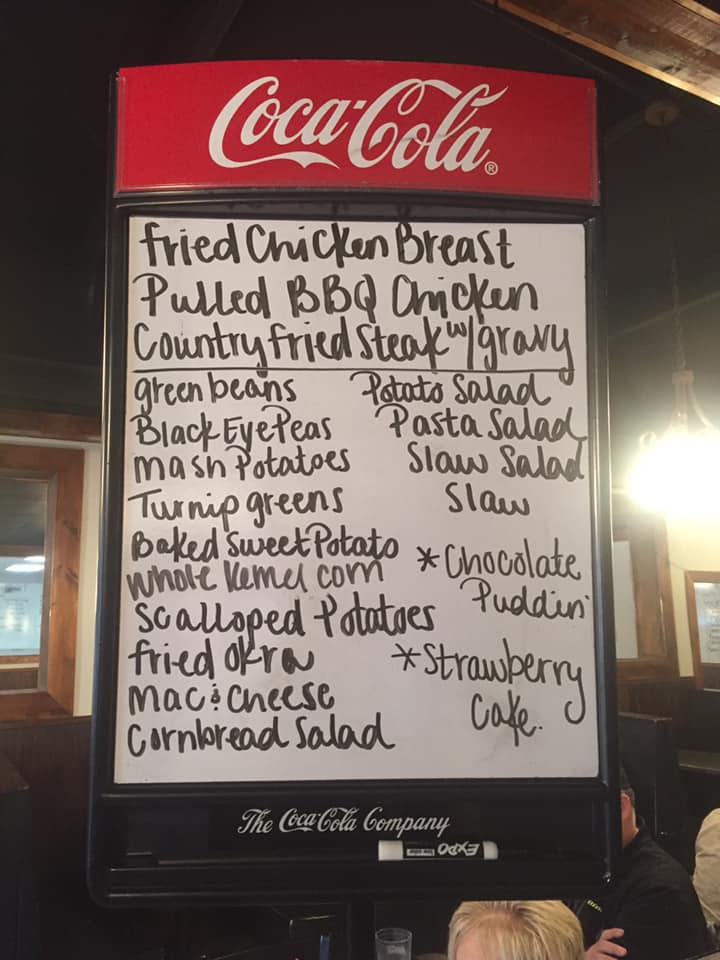 Coca-Cola®
fried Chicken Breast
Pulled BBQ Chicken
Country fried Steak w/gravy
green beans
Black Eye Peas
mash Potatoes
Turnip greens
Baked Sweet Potato
whole kernel corn
Scalloped Potatoes
fried okra
Mac & Cheese
Cornbread Salad
Potato Salad
Pasta Salad
Slaw Salad
Slaw
*Chocolate
Puddin'
*Strawberry
Cake.
The Coca-Cola Company
EXPO